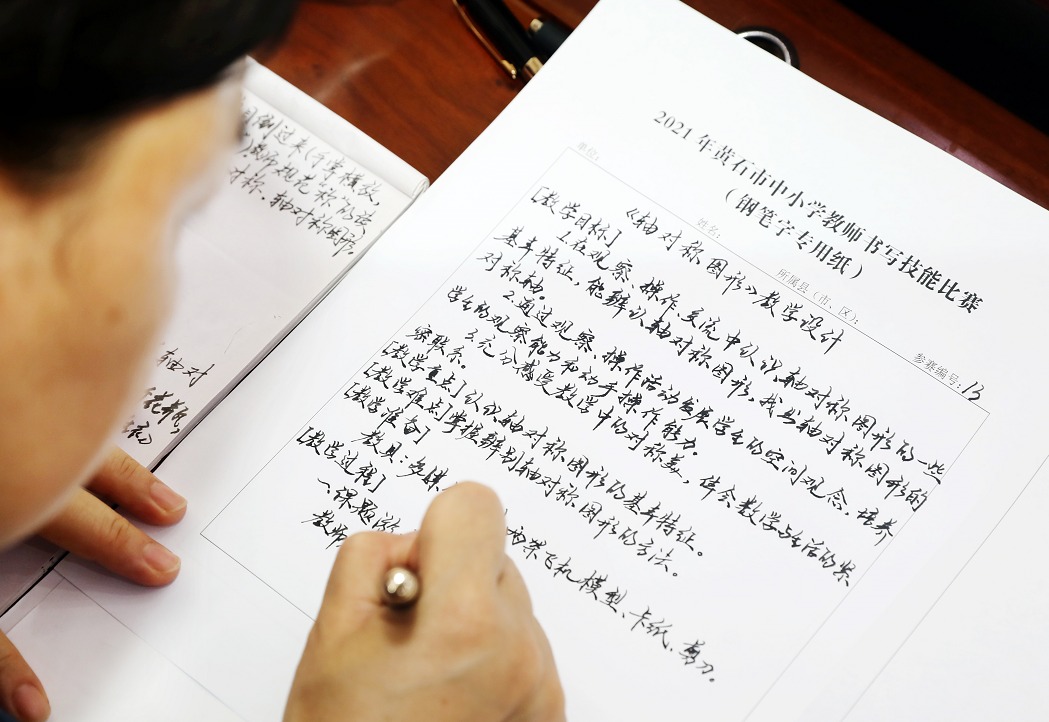 2021年黄石市中小学教师书写技能比赛
(钢笔字专用纸)
单位: 姓名: 所属县(市、区): 参赛编号: 13
《轴对称图形》教学设计
[教学目标]
1.在观察、操作、交流中认识轴对称图形的一些
基本特征,能辨认轴对称图形,找出轴对称图形的
对称轴。
2.通过观察、操作活动发展学生的空间观念,培养
学生的观察能力和动手操作能力。
3.充分感受数学中的对称美,体会数学与生活的紧
密联系。
[教学重点]认识轴对称图形的基本特征。
[教学难点]掌握辨别轴对称图形的方法。
[教学准备]
教具:多媒 两架飞机模型、卡纸、剪刀。
[教学过程]
一、课题
教师
倒过来(手掌横放,
对称、轴对称图形,
轴对
花瓶,